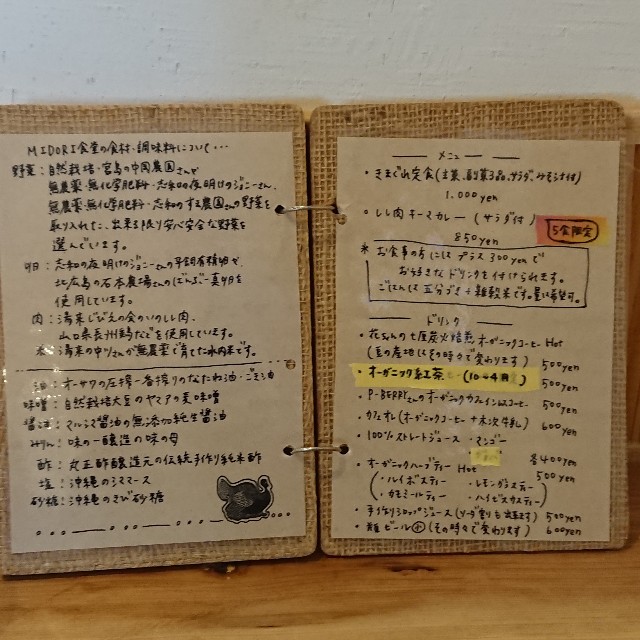 MIDORI食堂の食材・調味料について・・・
野菜：自然栽培・宮島の中国農園さんや
無農薬・無化学肥料・志和の夜明けのジョニーさん、
無農薬・無化学肥料・志和のする農園さんの野菜を
取り入れた、出来る限り安心安全な野菜を
選んでいます。
卵：志和の夜明けのジョニーさんの平飼有精卵や
北広島の石本農場さんの
使用しています。
肉：湯来じびえの会のいのしし肉、
山口県長州鶏などを使用しています。
米：湯来の中川さんが無農薬で育てた水内米です。
油：オーサワの圧搾一番搾りのなたね油・ごま油
味噌：自然栽培大豆のヤマアの麦味噌
醤油：マルシマ醤油の無添加純生醤油
みりん：味の一醸造の味の母
酢：丸正酢醸造元の伝統手作り純米酢
塩：沖縄のシママース
砂糖：沖縄のきび砂糖
メニュー
・きまぐれ定食(主菜、副菜3品、サラダ、みそ汁付)
1.000yen
・しし肉キーマカレー (サラダ付)
850yen
5食限定
＊お食事の方にはプラス300yenで
お好きなドリンクを付けられます。
ごはんは五分づき＋雑穀米です。
ドリンク
・花さんの七厘炭火焙煎オーガニックコーヒー Hot
(豆の産地はその時々で変わります) 500yen
・オーガニック紅茶 500yen
・P-BERRYさんのオーガニックカフェインレスコーヒー 500yen
・カフェオレ(オーガニックコーヒー＋木次牛乳) 600yen
・100%ストレートジュース ・マンゴー
各400yen
・オーガニックハーブティー Hot 500yen
・ルイボスティー ・レモングラスティー
・カモミールティー ・ハイビスカスティー
・手作りシロップジュース(ソーダ割りも出来ます) 500yen
・瓶ビール(小)(その時々で変わります) 600yen